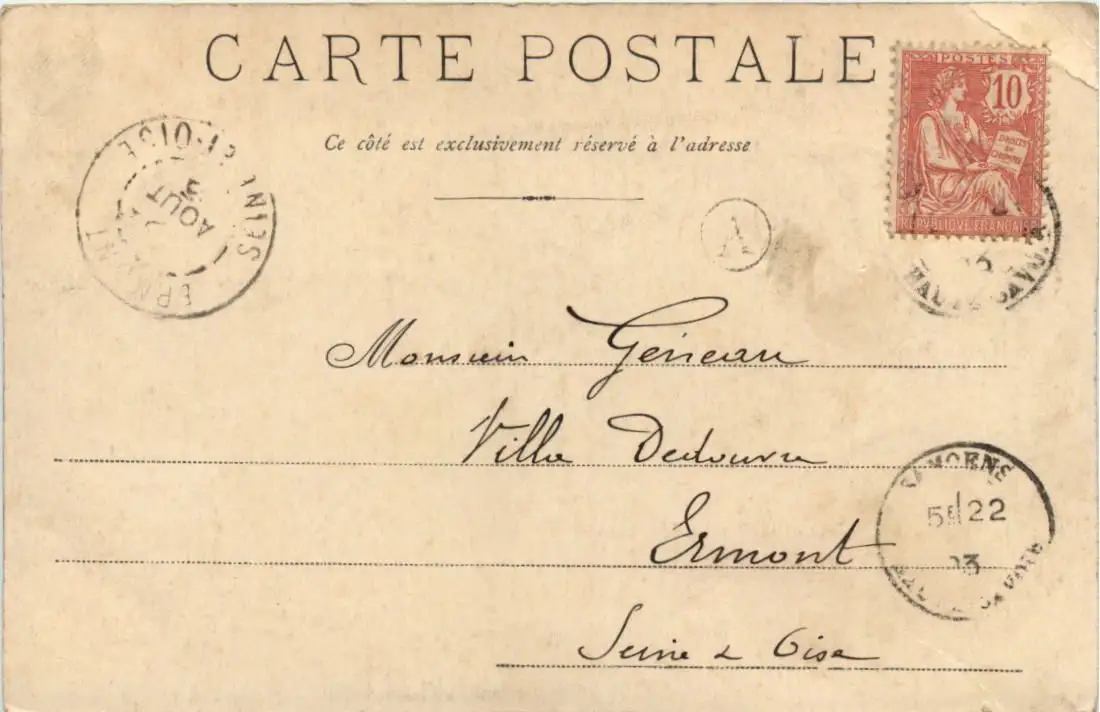 CARTE POSTALE
Ce côté est exclusivement réservé à l'adresse
POSTES
10
DROITS DE L'HOMME
REPUBLIQUE FRANCAISE
SEINE-ET-OISE
AOUT
ERMONT
A
HAUTE SAVOIE
Monsieur
Villa
Ermont
Seine & Oise
SAMOENS
5E 22
03
HAUTE SAVOIE